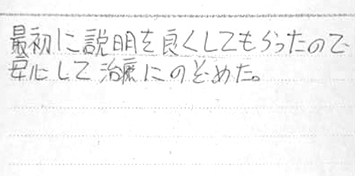 最初に説明を良くしてもらったので
安心して治療にのぞめた。